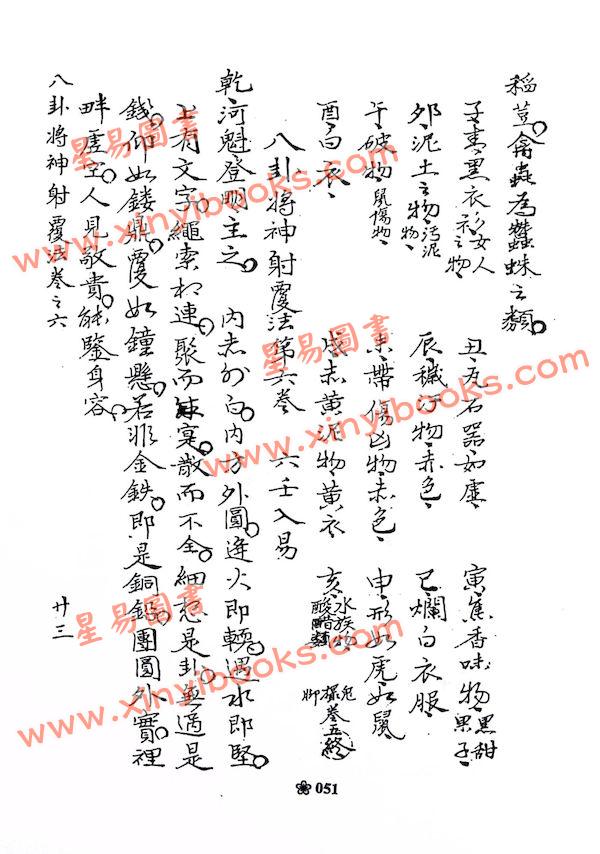 稲荳禽蟲為蠶蛛之類
子青黑衣衫女人衣之物
丑瓦石器如虛
寅焦香味物黑甜果子
卯泥土之物汚泥物
辰穢汙物赤色
巳爛白衣服
午破物鼠傷物
未帶傷凶物赤色
申形如虎如鼠
酉白衣
戌赤黃泥物黃衣
亥水族物酸醋類
卷五終
八卦將神射覆法第六卷 六壬入易
乾河魁登明主之 內赤外白內方外圓逢火即轉遇水即堅
上有文字繩索相連聚而 寔散而不全細想是卦無過是
錢仰如鏤鼎覆如鐘懸若非金鉄即是銅鉛團圓外實裡
畔虛空人見敬貴能鑒身容
八卦將神射覆法卷之六 廿三
051
星易圖書
www.xinyibooks.com
星易圖書
www.xinyibooks.com
星易圖書
www.xinyibooks.com
星易圖書
www.xinyibooks.com